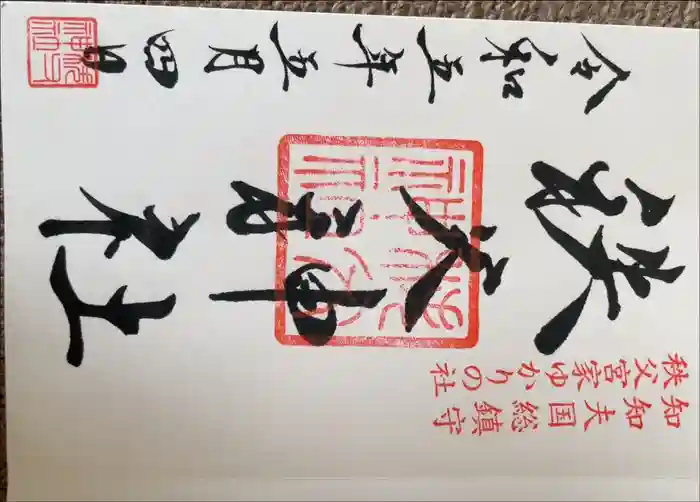 知知夫国総鎮守
秩父宮家ゆかりの社
秩父神社
令和五年五月四日